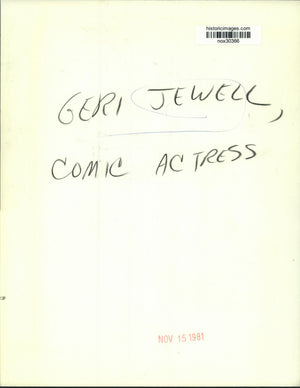 historicimages.com
nox30366
GERI JEWELL,
COMIC ACTRESS
NOV 15 1981